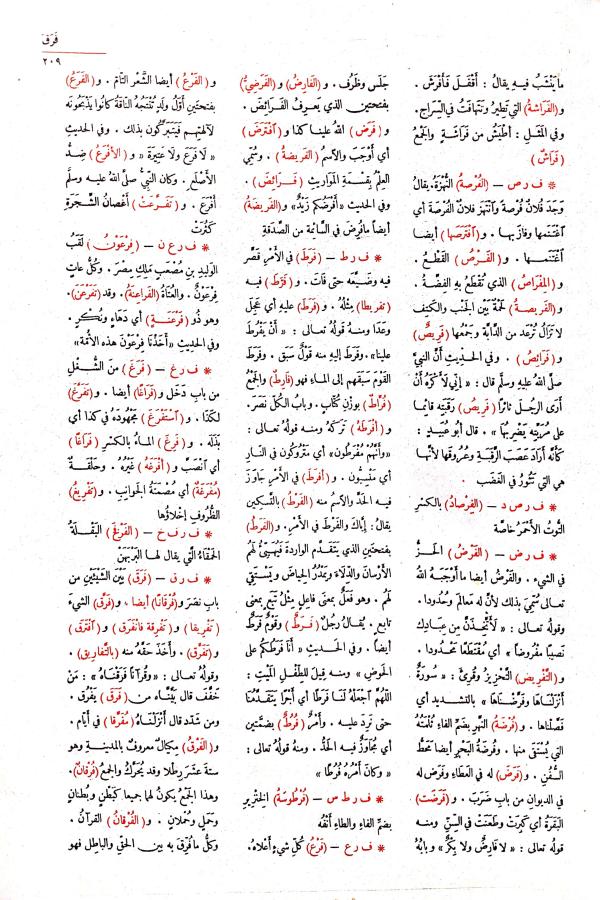 فَرَقَ
٢٠٩
ما يَنْشَبُ فيه يقالُ : أَقْفَلَ فَأَفْرَشَ .
و(الفَرَاشَةُ) التي تَطِيرُ وتَتَهافَتُ في السِّراج.
وفي المَثَل : أَطْيَشُ من فَرَاشَةٍ والجَمْعُ
(فَرَاشٌ)
* ف ر ص – (الفُرْصَةُ) النُّهْزَة. يقالُ
وَجَدَ فُلانٌ فُرْصةً وٱنْتَهَزَ فلانٌ الفُرْصَةَ أي
ٱغْتَنَمَها وفازَ بها . و(ٱفْتَرَصَها) أيضا
ٱغْتَنَمَها . و(الفَرْصُ) القَطْعُ .
و(المِفْرَاصُ) الذي تُقْطَعُ به الفِضَّةُ .
و(الفَرِيصَةُ) لَحْمَةٌ بَيْن الجَنْبِ والكَتِفِ
لا تَزَالُ تُرْعَدُ من الدَّابَّةِ وجَمْعُها (فَرِيصٌ)
و(فَرَائِصُ) . وفي الحَدِيثِ أَنَّ النبيَّ
صلَّى اللهُ عليه وسلَّم قال : « إني لَأَكْرَهُ أَنْ
أَرَى الرَّجُلَ ثائِرًا (فَرِيصُ) رَقَبَتِه قائِما
على مُرَيَّتِه يَضْرِبُها » . قال أبو عُبيدٍ :
كأنَّه أرادَ عَصَبَ الرَّقَبَةِ وعُرُوقَها لأنَّها
هي التي تَثُورُ في الغَضَبِ
* ف ر ص د – (الفِرْصادُ) بالكسْرِ
التُّوتُ الأَحْمَرُ خاصَّةً
* ف ر ض – (الفَرْضُ) الحَزُّ
في الشيء . والفَرْضُ أيضا ما أَوْجَبَهُ اللهُ
تعالى سُمِّيَ بذلك لأنَّ له مَعالِمَ وحُدُودا.
وقولُه تعالى : « لَأَتَّخِذَنَّ مِن عِبادِكَ
نَصِيبًا مَفْرُوضا » أي مُقْتَطَعًا مَحْدُودا .
و(التَّفْرِيض) التَّحْزِيزُ وقُرِئَ : « سُورَةٌ
أَنْزَلْنَاهَا وفَرَّضْنَاهَا » بالتشديد أي
فَصَّلْناها . و(فُرْضَةُ) النَّهْرِ بضمِّ الفاءِ ثُلْمَتُهُ
التي يُسْتَقَى منها . وفُرْضَةُ البَحْرِ أيضا مَحَطُّ
السُّفُن . و(فَرَضَ) له في العَطاءِ وفَرَض له
في الديوانِ من باب ضَرَبَ . و(فَرَضَت)
البَقَرةُ أي كَبِرَتْ وطَعَنَتْ في السِّنِّ ومنه
قولُه تعالى : « لا فَارِضٌ ولا بِكْرٌ » وبابُهُ
جَلَس وظَرُف . و(الفَارِضُ) و(الفَرَضِيُّ)
بفتحتين الذي يَعْرِفُ الفَرَائِضَ .
و (فَرَضَ) اللهُ علينا كذا و (ٱفْتَرَضَ)
أي أَوْجَبَ والٱسمُ (الفَرِيضَةُ) . وسُمِّي
العِلْمُ بقِسْمةِ المَوَارِيثِ (فَرَائِضَ) .
وفي الحديثِ « أَفْرَضُكم زَيْدٌ » و(الفَرِيضَةُ)
أيضا ما فُرِضَ في السَّائِمَةِ من الصَّدَقَةِ
* ف ر ط – (فَرَطَ) في الأَمْرِ قَصَّر
فيه وضَيَّعَه حتى فاتَ . و(فَرَّطَ) فيه
(تفريطا) مِثْلُه . و(فَرَطَ) عليه أي عَجِلَ
وعَدَا ومنه قولُه تعالى : « أَنْ يَفْرُطَ
علينا ». وفَرَط إليه منه قولٌ سبَق . وفَرَطَ
القَوْمَ سَبَقهم إلى الماءِ فهو (فارِطٌ) والجَمْعُ
(فُرَّاطٌ) بوزْنِ كُتَّاب . وبابُ الكُلِّ نَصَرَ.
و(أَفْرَطَهُ) تَرَكَهُ ومنه قولُه تعالى :
«وأَنَّهُمْ مُفْرَطُون» أي مَتْرُوكُون في النارِ
أي مَنْسِيُّون . و(أَفرَطَ) في الأَمْرِ جاوَزَ
فيه الحَدَّ والٱسم منه (الفَرْطُ) بالتَّسْكِين
يقالُ : إيَّاك والفَرْطَ في الأَمْر . و(الفَرَطُ)
بفتحتين الذي يَتَقَدَّم الوارِدةَ فيُهَيِّئُ لهُمُ
الأَرْسانَ والدِّلاءَ ويَمْدُرُ الحِياضَ ويَسْتَقِي
لَهُمْ . وهو فَعَلٌ بمعنى فاعِلٍ مِثْلُ تَبَعٍ بمعنى
تابِع . يُقالُ رَجُلٌ (فَرَطٌ) وقَوْمٌ فَرَطٌ
أيضا . وفي الحديث « أَنا فَرَطُكم على
الحَوْض » ومنه قِيلَ للطِّفْلِ المَيِّتِ :
اللَّهمَّ ٱجْعَلْهُ لنا فَرَطًا أي أَجْرًا يَتَقَدَّمُنا
حتى نَرِدَ عليه . وأَمْرٌ (فُرُطٌ) بضمَّتين
أي مُجاوَزٌ فيه الحَدُّ . ومنهُ قولُه تعالى :
« وكانَ أَمْرُهُ فُرُطًا »
* ف ر ط س – (فُرْطُوسَةُ) الخِنْزِيرِ
بضم الفاءِ والطاءِ أَنْفُهُ
* ف ر ع – (فَرْعُ) كُلِّ شيءٍ أَعْلاهُ .
و(الفَرْعُ) أيضا الشَّعْر التَّامّ . و(الفَرَعُ)
بفتحتين أوَّلُ ولَدٍ تُنْتِجُهُ الناقَةُ كانُوا يَذْبَحُونَه
لآلِهتِهم فيَتَبَرَّكُون بذلك . وفي الحَديثِ
« لا فَرَعَ ولا عَتِيرَة » و(الأَفْرَعُ) ضِدُّ
الأَصْلَع . وكان النبيُّ صلَّى اللهُ عليه وسلَّم
أَفْرَع . و (تَفَرَّعَتْ) أَغْصانُ الشَّجَرةِ
كَثُرَتْ
* ف ر ع ن – (فِرْعَوْنُ) لَقَبُ
الوَلِيدِ بنِ مُصْعَبٍ مَلِكِ مِصْر. وكلُّ عاتٍ
فِرْعَوْنٌ. والعُتاةُ (الفَراعِنَةُ). وقد (تَفَرْعَنَ).
وهو ذُو (فَرْعَنَةٍ) أي دَهَاءٍ ونُكْرٍ .
وفي الحديثِ «أَخَذْنَا فِرْعَوْنَ هذه الأُمَّة»
* ف ر غ – (فَرَغَ) مِنَ الشُّغْلِ
من بابِ دَخَل و(فَرَاغًا) أيضا . و(تَفَرَّغَ)
لكذا . و(ٱسْتَفْرَغَ) مَجْهُودَه في كذا أي
بذَلَه . و(فَرِغَ) الماءُ بالكَسْرِ (فَرَاغًا)
أي ٱنْصَبَّ و(أَفْرَغَهُ) غَيْرُه . وحَلْقةٌ
(مُفْرَغَةٌ) أي مُصْمَتَةُ الجَوانِبِ . و(تَفْرِيغُ)
الظُّرُوفِ إخْلاؤُها
* ف ر ف خ – (الفَرْفَخُ) البَقْلَةُ
الحَمْقاءُ التي يقالُ لها الَبرْبَهَنُ
* ف ر ق – (فَرَقَ) بَيْنَ الشَّيْئَيْنِ من
باب نَصَرَ و(فُرْقَانًا) أيضا ، و(فَرَّقَ) الشيءَ
(تَفْرِيقا) و(تَفْرِقة فانْفَرَقَ) و (ٱفْتَرَقَ)
و(تَفَرَّقَ) . وأَخَذَ حَقَّه منه (بالتَّفارِيق) .
وقولُهُ تعالى : « وقُرْآنًا فَرَقْنَاهُ » : مَنْ
خَفَّفَ قال بَيَّنَّاهُ من (فَرَقَ) يَفْرُق .
ومن شَدَّد قال أَنْزَلناهُ (مُفَرَّقا) في أيَّام .
و(الفَرْقُ) مِكيالٌ معروفٌ بالمدينةِ وهو
ستَّةَ عَشَرَ رِطْلًا وقد يُحَرَّكُ والجمعُ (فُرْقانٌ).
وهذا الجَمْعُ يكُونُ لها جميعا كبَطْنٍ وبُطْنانٍ
وحَمَلٍ وحُمْلانٍ . و(الفُرْقانُ) القرآنُ .
وكلُّ ما فُرِقَ به بين الحَقِّ والباطِلِ فهو